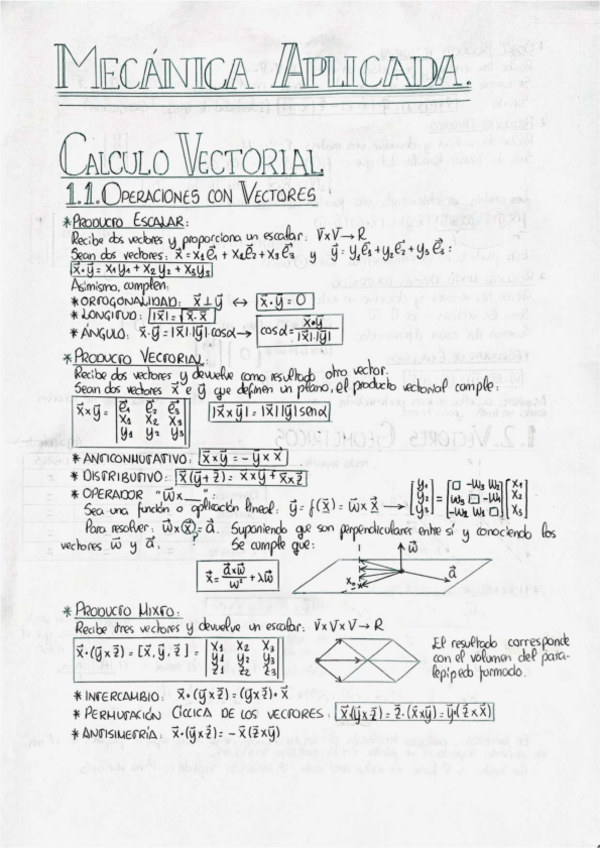 MECÁNICA APLICADA.
CALCULO VECTORIAL
1.1. OPERACIONES CON VECTORES
* PRODUCTO ESCALAR:
Recibe dos vectores y proporciona un escalar: V⃗xV⃗→R
Sean dos vectores: x⃗ = x₁e⃗₁ + x₂e⃗₂ + x₃e⃗₃ y y⃗ = y₁e⃗₁ + y₂e⃗₂ + y₃e⃗₃ :
x⃗·y⃗ = x₁y₁ + x₂y₂ + x₃y₃
Asimismo, cumplen:
* ORTOGONALIDAD: x⃗ ⊥ y⃗ ↔ x⃗·y⃗ = 0
* LONGITUD: |x⃗| = √x⃗·x⃗
* ÁNGULO: x⃗·y⃗ = |x⃗|·|y⃗| cosα → cosα = x⃗·y⃗ / |x⃗|·|y⃗|
* PRODUCTO VECTORIAL:
Recibe dos vectores y devuelve como resultado otro vector.
Sean dos vectores x⃗ e y⃗ que definen un plano, el producto vectorial cumple:
x⃗ x y⃗ = | e⃗₁ e⃗₂ e⃗₃ | |x⃗ x y⃗| = |x⃗||y⃗| senα
x₁ x₂ x₃
y₁ y₂ y₃
* ANTICONMUTATIVO: x⃗ x y⃗ = - y⃗ x x⃗
* DISTRIBUTIVO: x⃗(y⃗ + z⃗) = x⃗ x y⃗ + x⃗ x z⃗
* OPERADOR "w⃗ x __"
Sea una función o aplicación lineal: y⃗ = f(x⃗) = w⃗ x x⃗ → [y₁ y₂ y₃] = [□ -w₃ w₂; w₃ □ -w₁; -w₂ w₁ □] [x₁ x₂ x₃]
Para resolver: w⃗ x (x⃗) = a⃗. Suponiendo que son perpendiculares entre sí y conociendo los
vectores w⃗ y a⃗. ? Se cumple que:
x⃗ = a⃗ x w⃗ / w² + λw⃗
w⃗
a⃗
x₀
* PRODUCTO MIXTO:
Recibe tres vectores y devuelve un escalar: V⃗xV⃗xV⃗→R
x⃗·(y⃗ x z⃗) = [x⃗, y⃗, z⃗] = | x₁ x₂ x₃ |
y₁ y₂ y₃
z₁ z₂ z₃
El resultado corresponde
con el volumen del para-
lepípedo formado.
* INTERCAMBIO: x⃗·(y⃗ x z⃗) = (y⃗ x z⃗)·x⃗
* PERMUTACIÓN CÍCLICA DE LOS VECTORES: x⃗·(y⃗ x z⃗) = z⃗·(x⃗ x y⃗) = y⃗·(z⃗ x x⃗)
* ANTISIMETRÍA: x⃗·(y⃗ x z⃗) = - x⃗(z⃗ x y⃗)